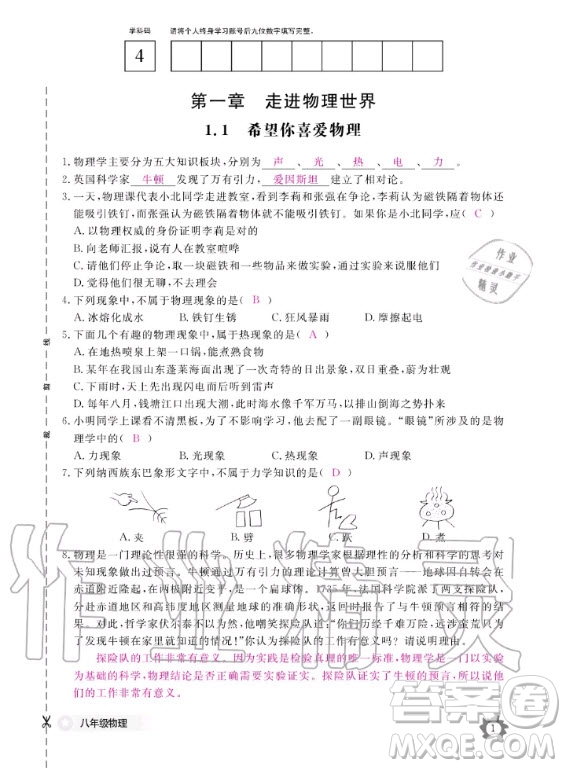 学科码 请将个人终身学习账号后九位数字填写完整。
4
第一章 走进物理世界
1.1 希望你喜爱物理
1. 物理学主要分为五大知识板块，分别为 声 、 光 、 热 、 电 、 力 。
2. 英国科学家 牛顿 发现了万有引力， 爱因斯坦 建立了相对论。
3. 一天，物理课代表小北同学走进教室，看到李莉和张强在争论，李莉说磁铁隔着物体还
能吸引铁钉，而张强认为磁铁隔着物体就不能吸引铁钉。如果你是小北同学，应（ C ）
A. 以物理权威的身份证明李莉是对的
B. 向老师汇报，说有人在教室喧哗
C. 请他们停止争论，说道理不如一起去做实验，通过实验来解决争议
D. 觉得他们很无聊，没有理睬
4. 下列现象中，不属于物理现象的是（ B ）
A. 冰熔化成水 B. 铁钉生锈 C. 狂风暴雨 D. 摩擦起电
5. 下面几个有趣的物理现象中，属于热现象的是（ A ）
A. 在地热喷泉上架一口锅，能煮熟鸡蛋
B. 某年在我国山东蓬莱海面出现的海市蜃楼奇观，亭台楼阁，车影重叠，蔚为壮观
C. 下雨时，先看到闪电后听到雷声
D. 每年八月，钱塘江大潮发出的声响如万马奔腾，其排山倒海之势扑面而来
6. 小明同学上课看不清黑板，为了不影响学习，他去配了一副眼镜。“眼镜”所涉及的是物
理学中的（ B ）
A. 力现象 B. 光现象 C. 热现象 D. 电现象
7. 下列纳西族东巴象形文字中，不属于力学知识的是（ D ）
A. 夹 B. 劈 C. 跃 D. 煮
8. 物理是一门理论性很强的科学，更是一门实验科学。物理学家用准确而科学的思考对
未来进行预言。牛顿通过万有引力的理论计算曾大胆预言——地球因自转会在
赤道附近隆起，在两极附近变平，是一个巨大的扁球体。1735年，法国科学院派了两支探险队，
分赴赤道和高纬度地区测量地球的半径，测量结果证明了牛顿的预
言。哲学家伏尔泰不以为然，嘲笑探险队：“你们历经千难万险，远涉蛮荒只为发现
牛顿在家里就能知道的东西！”你认为探险队的工作有意义吗？请说明理由。
探险队的工作非常有意义。因为实践是检验真理的唯一标准，物理学是一门实
验科学，物理结论是否正确需要实验证实。探险队的工作证实了牛顿的预言，所以
探险队的工作非常有意义。
八年级物理
1
作业
精灵
作业精灵
答案圈
MXQE.COM